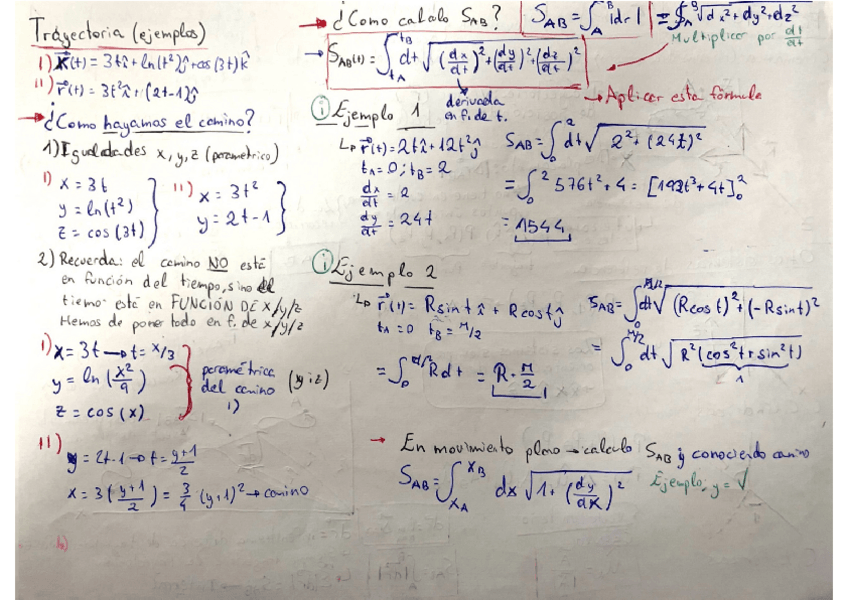 Trayectoria (ejemplos)
I) r⃗(t) = 3t î + ln(t²) ĵ + cos(3t) k̂
II) r⃗(t) = 3t² î + (2t-1) ĵ
→ ¿Como hayamos el camino?
1) Igualdades x, y, z (parametrico)
I) x = 3t
y = ln(t²)
z = cos(3t)
II) x = 3t²
y = 2t-1
2) Recuerda: el camino NO está
en función del tiempo, sino el
tiemo está en FUNCIÓN DE x/y/z
Hemos de poner todo en f. de x/y/z
I) x = 3t → t = x/3
y = ln(x²/9)
z = cos(x)
paramétrica
del camino (y i z)
1)
II) y = 2t-1 → t = (y+1)/2
x = 3((y+1)/2) = 3/4 (y+1)² → camino
→ ¿Como calculo S_AB? S_AB = ∫_A^B |dr| = ∫_A^B √(dx²+dy²+dz²)
Multiplicar por dt/dt
→ S_AB(t) = ∫_tA^tB dt √((dx/dt)²+(dy/dt)²+(dz/dt)²)
derivada
en f. de t.
→ Aplicar esta fórmula
i Ejemplo 1
↳ r⃗(t) = 2t î + 12t² ĵ
t_A = 0; t_B = 2
dx/dt = 2
dy/dt = 24t
S_AB = ∫_0^2 dt √(2² + (24t)²)
= ∫_0^2 576t² + 4 = [192t³+4t]_0^2
= 1544
i Ejemplo 2
↳ r⃗(t) = R sin t î + R cos t ĵ
t_A = 0 t_B = π/2
S_AB = ∫_0^π/2 dt √((R cos t)² + (-R sin t)²
= ∫_0^π/2 dt √(R²(cos²t + sin²t)
1
= ∫_0^π/2 R dt = R · π/2
→ En movimiento plano → calculo S_AB y conociendo camino
S_AB = ∫_xA^xB dx √(1+(dy/dx)²)
Ejemplo: y = √